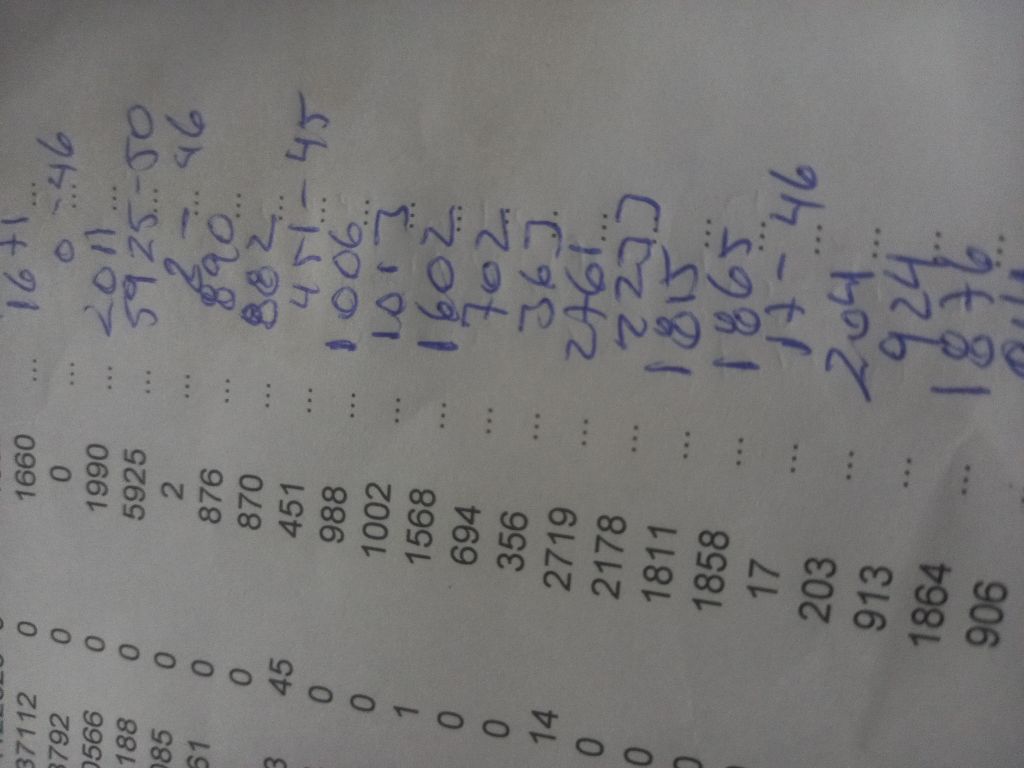 37112 0 1660 ... 1671 ...
3792 0 0 ... 0 - 46 ...
0566 0 1990 ... 2011 ...
188 0 5925 ... 5925 - 50 ...
085 0 2 ... 2 - 46 ...
61 0 876 ... 890 ...
0 870 ... 882 ...
3 45 451 ... 451 - 45 ...
0 988 ... 1006 ...
0 1002 ... 1013 ...
1 1568 ... 1602 ...
0 694 ... 702 ...
0 356 ... 363 ...
14 2719 ... 2761 ...
0 2178 ... 2233 ...
0 1811 ... 1815 ...
0 1858 ... 1865 ...
17 ... 17 - 46 ...
203 ... 204 ...
913 ... 924 ...
1864 ... 1876 ...
906 ...